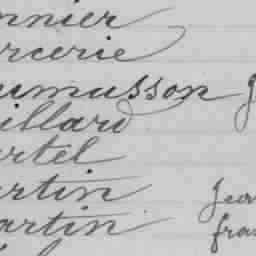 nnier
rcerie
umusson J
illard
rtel
artin Jean
artin fran